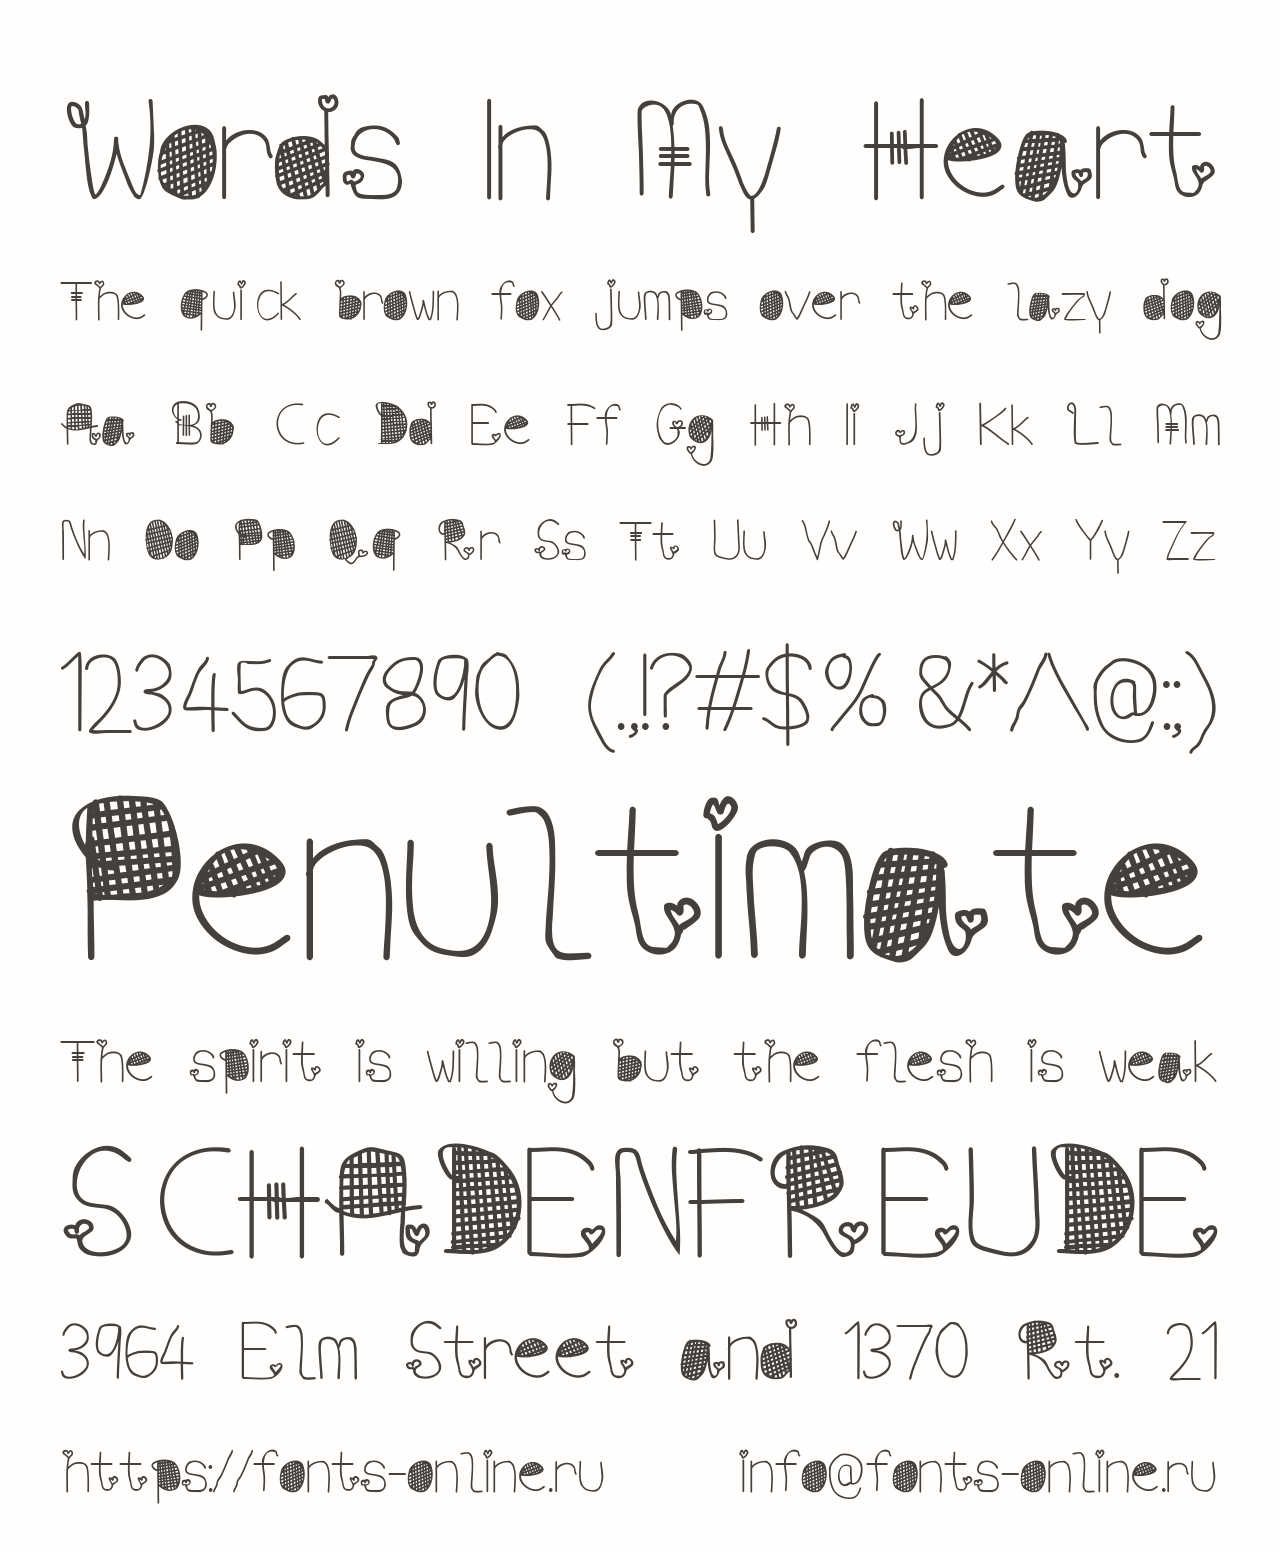 Words In My Heart
The quick brown fox jumps over the lazy dog
Aa Bb Cc Dd Ee Ff Gg Hh Ii Jj Kk Ll Mm
Nn Oo Pp Qq Rr Ss Tt Uu Vv Ww Xx Yy Zz
1234567890 (.,!?#$% &*/\@:;)
Penultimate
The spirit is willing but the flesh is weak
SCHADENFREUDE
3964 Elm Street and 1370 Rt. 21
https://fonts-online.ru info@fonts-online.ru